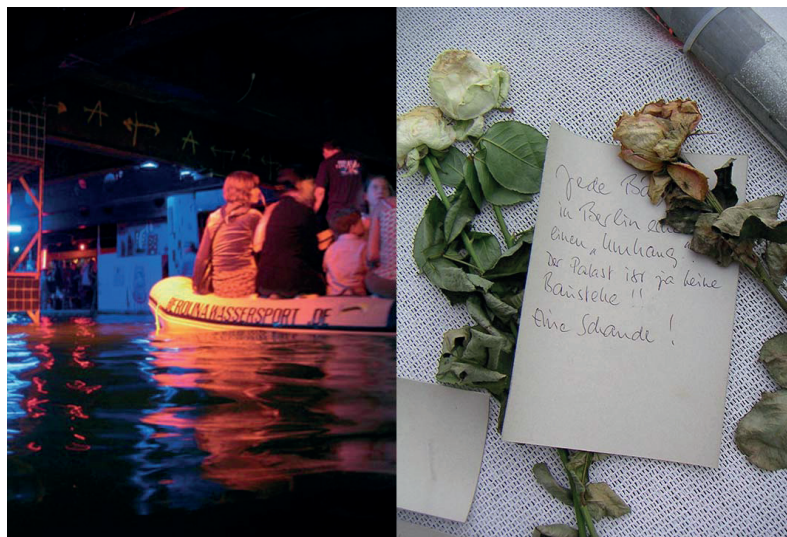 A
A
BEROLINAWASSERSPORT.DE
Jede
in Berlin
einen „Umhang"
Der Palast ist ja keine
Baustelle !!
Eine Schande !